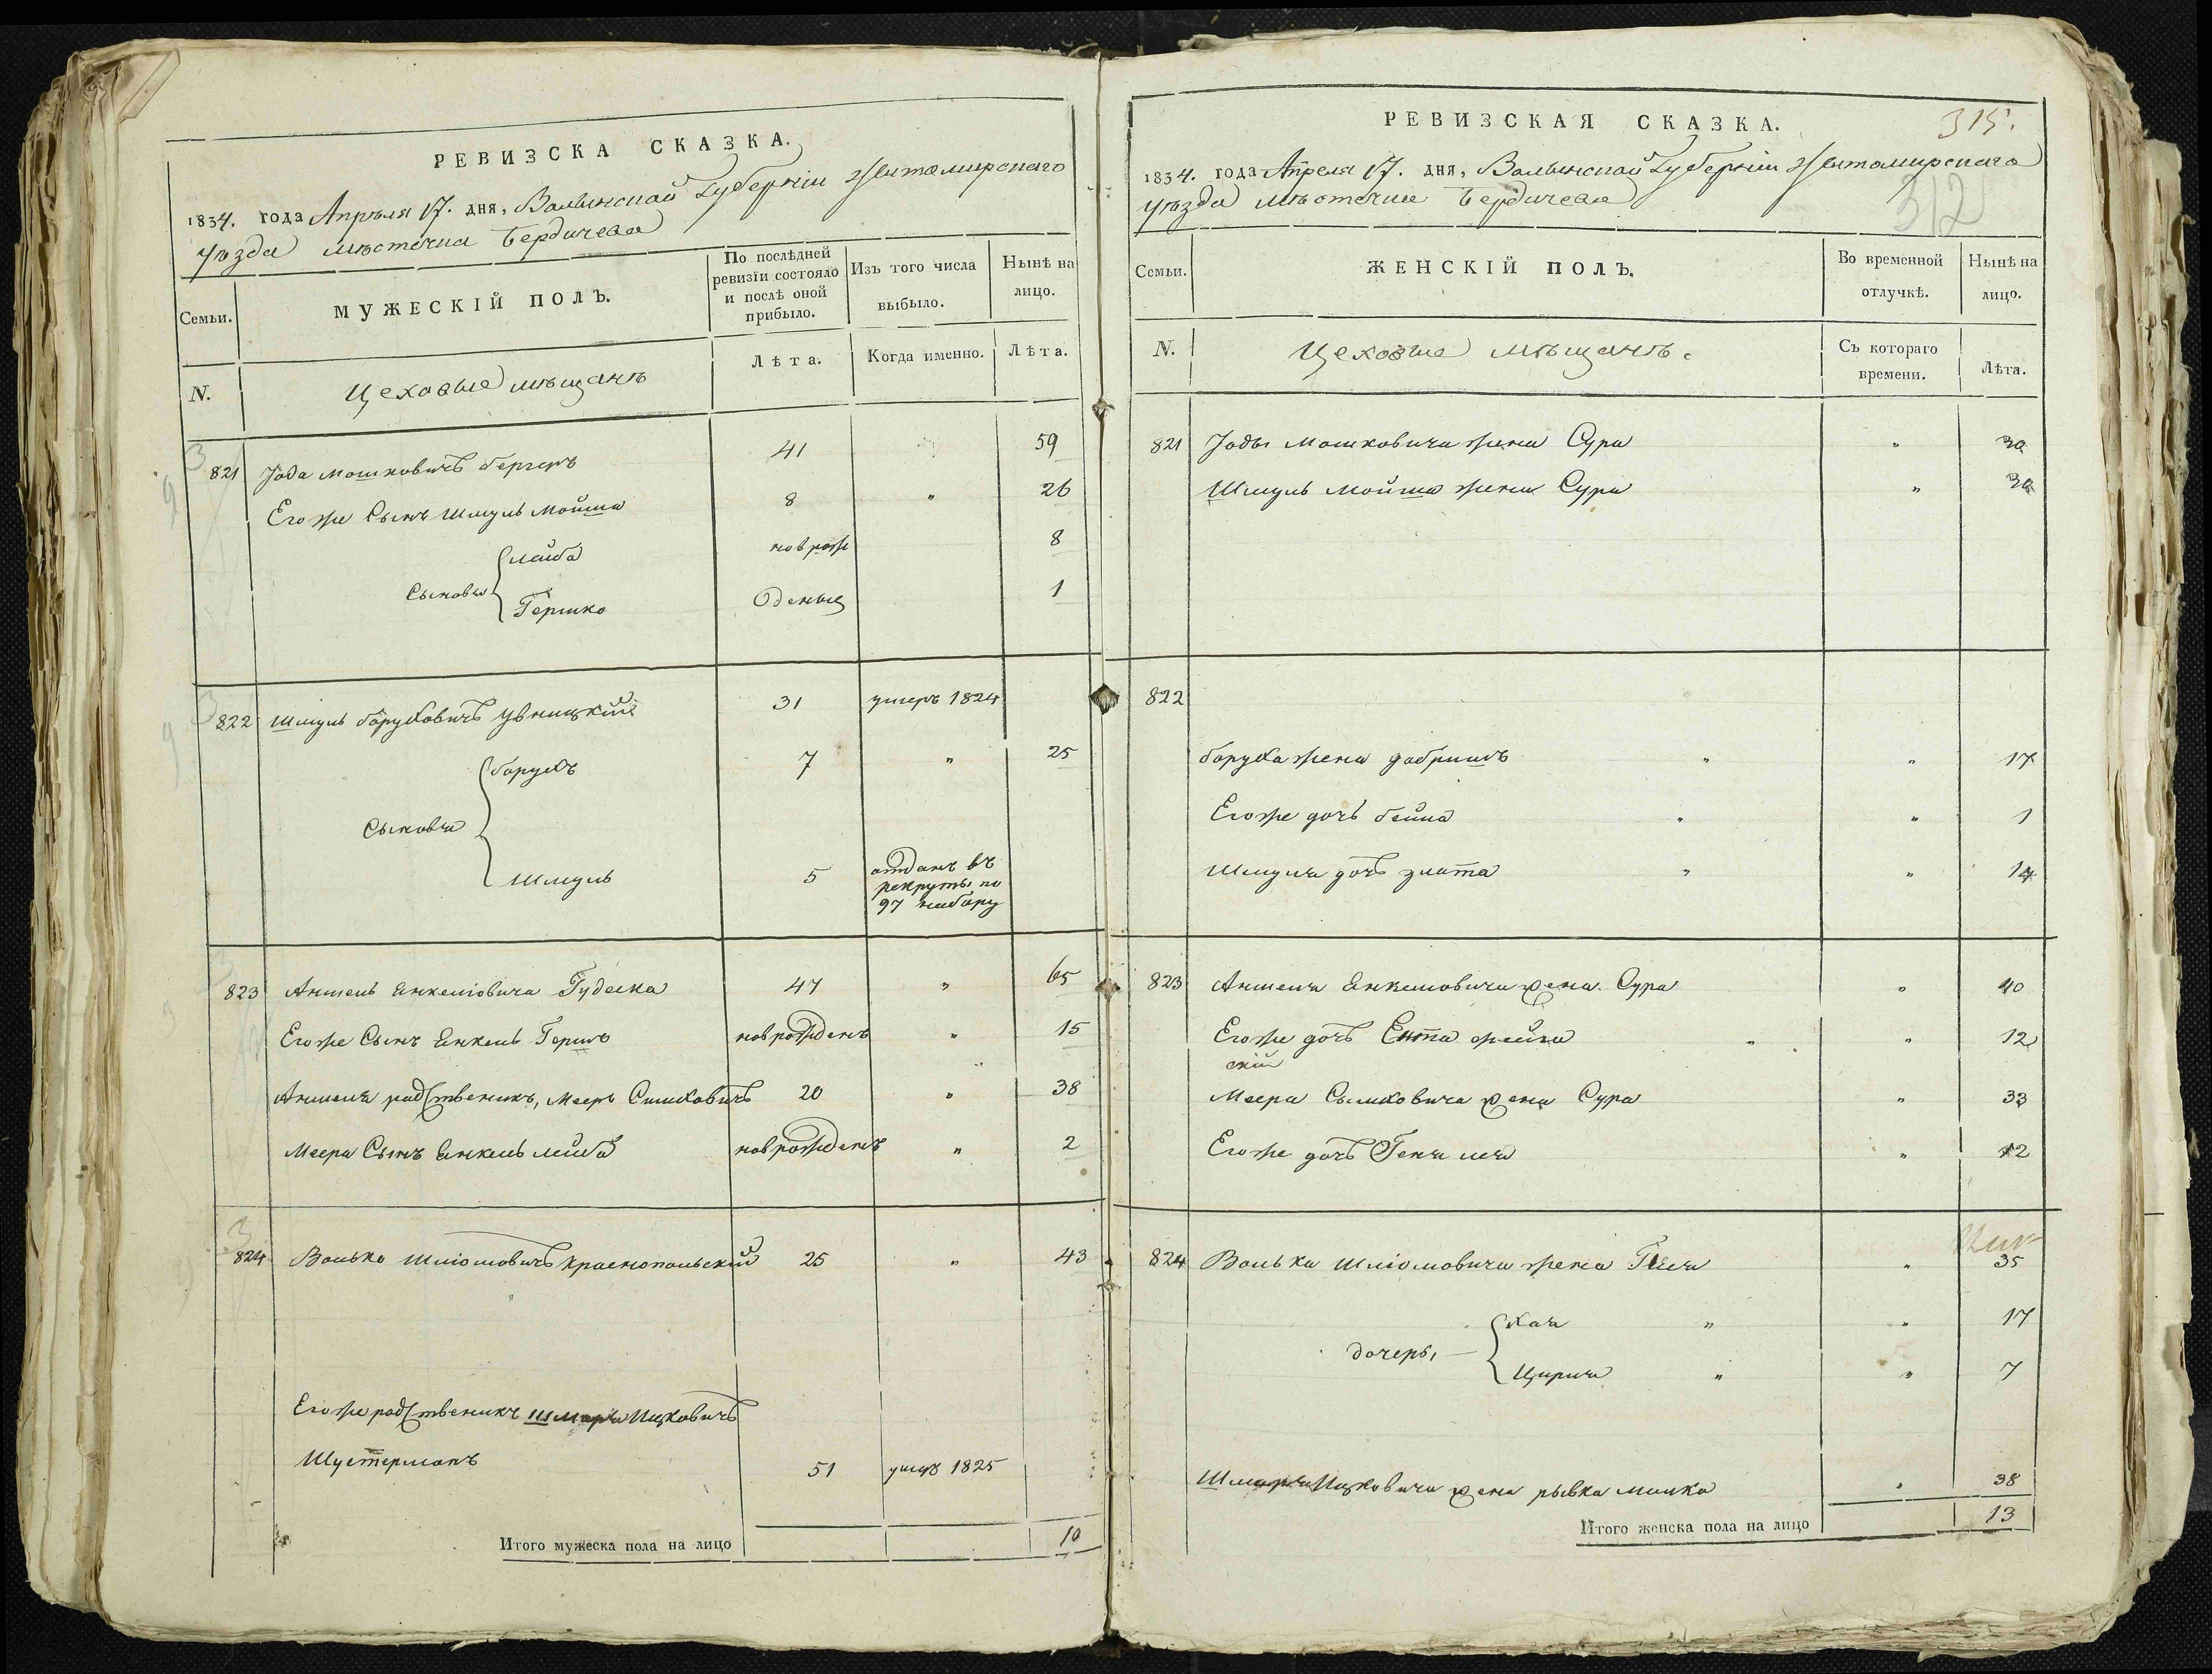 РЕВИЗСКА СКАЗКА.
1834. года Апрѣля 17. дня, Волынской Губерніи Житомирскаго
уѣзда мѣстечка Бердичева
Семьи.
МУЖЕСКІЙ ПОЛЪ.
По послѣдней ревизіи состояло и послѣ оной прибыло.
Изъ того числа выбыло.
Нынѣ на лицо.
N.
Цеховые мѣщанъ
Лѣта.
Когда именно.
Лѣта.
821 Іода Мошковичъ бергеръ 41 59
Его же Сынъ Шмуль Мойша 8 " 26
Сыновья
лейба новрож 8
Гершко Оденыц 1
822 Шмуль борухович 31 умеръ 1824
Сыновья
борухъ 7 " 25
Шмуль 5 отданъ въ
рекруты по
97 набору
823 Аншель Янкеліовича Гудеска 47 " 65
Его же Сынъ Янкель Герш новрожденъ " 15
Аншеля родственикъ, Меер Симховичъ 20 " 38
Меера Сынъ Янкель лейба новрожденъ " 2
824 Волько Шліомовичъ Краснопольскій 25 " 43
Его же родственикъ Шмаря Ицковичъ
Шустерманъ 51 умеръ 1825
Итого мужеска пола на лицо 10
РЕВИЗСКАЯ СКАЗКА.
315.
1834. года Апреля 17. дня, Волынской Губерніи Житомирскаго
уѣзда мѣстечка Бердичева
312
Семьи.
ЖЕНСКІЙ ПОЛЪ.
Во временной отлучкѣ.
Нынѣ на лицо.
N.
Цеховые мѣщанъ.
Съ котораго времени.
Лѣта.
821 Іоды Мошковича жена Сура "
Шмуль Мойша жена Сура "
822
боруха жена добришъ " " 17
Его же дочь бейла " " 1
Шмуля дочъ злота " " 14
823 Аншеля Янкелювича жена Сура " 40
Его же дочъ Ента " " 12
Меера Сымховича жена Сура " 33
Его же дочъ Геня лея " 12
824 Волька Шліомовича жена " 35
дочеры
Хая " " 17
Цирля " " 7
Шмаря Ицковича жена рывка малка " 38
Итого женска пола на лицо 13